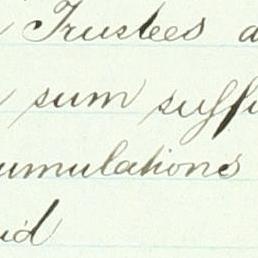 Trustees a
sum suffi
umulations
id